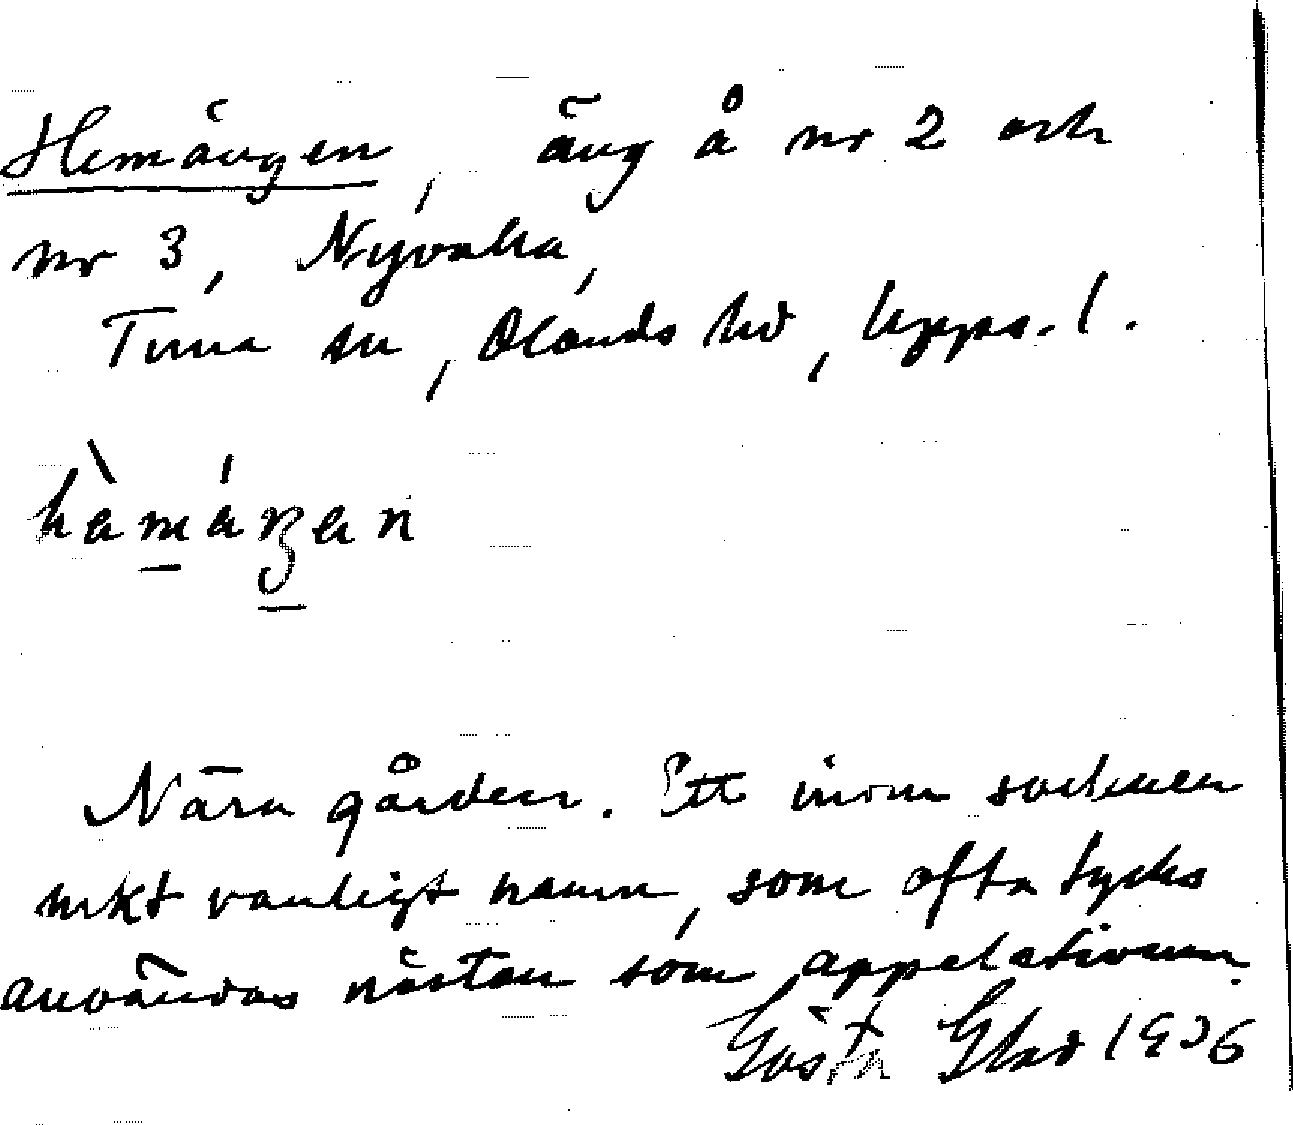 Hemängen, äng å nr 2 och
nr 3, Nyvalla,
Tuna sn, Olands hd, Upps. l.
Nära gården. Ett inom socknen
mkt vanligt namn, som ofta tycks
användas nästan som appelativum.
Gösta Glad 1936